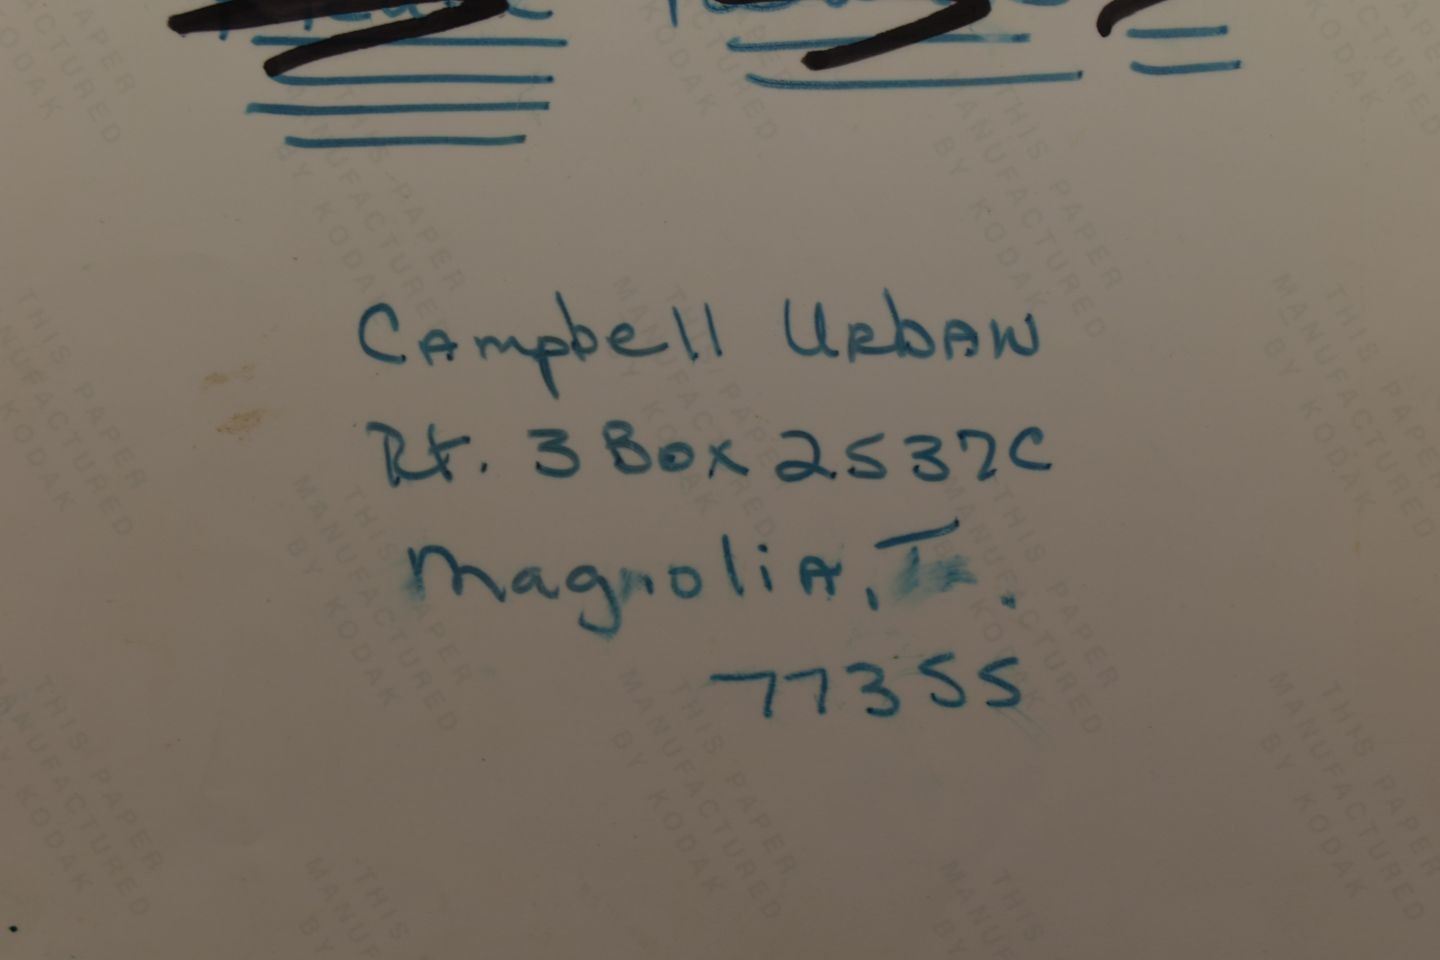 Campbell Urban
Rt. 3 Box 2537C
Magnolia, Tx.
77355
THIS PAPER
MANUFACTURED
BY KODAK